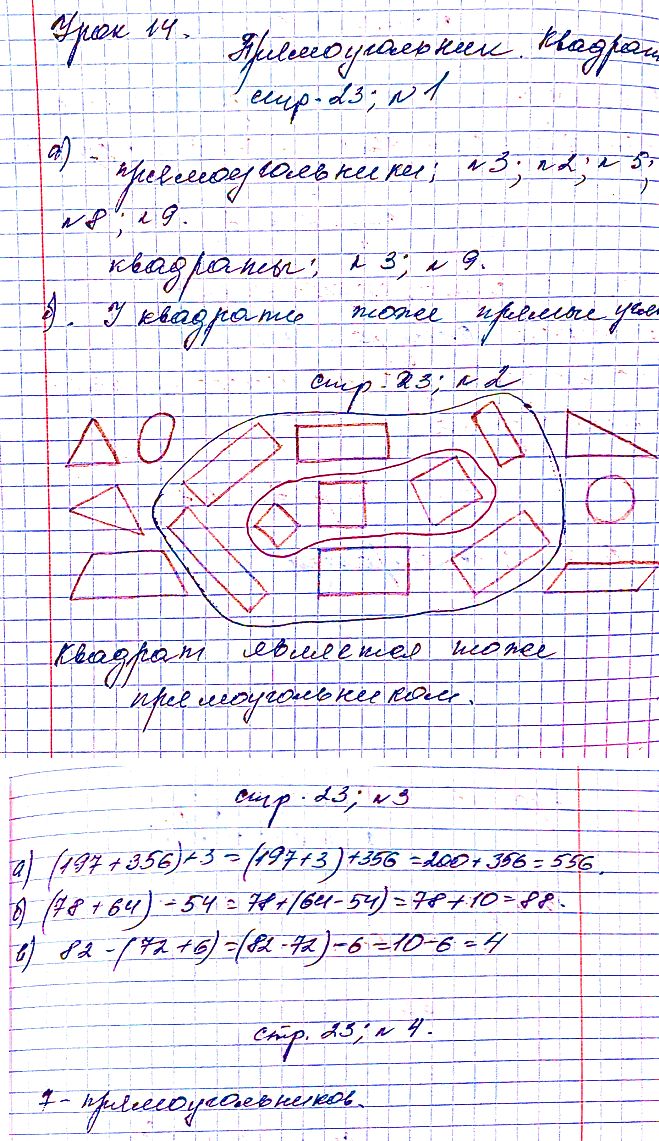 Урок 14.
Прямоугольник. Квадрат
стр. 23; №1
а) - прямоугольники; №3; №2; №5;
№8; №9.
квадраты; №3; №9.
б). У квадрата тоже прямые угл
стр. 23; №2
Квадрат является тоже
прямоугольником.
стр. 23; №3
а) (197+356)+3=(197+3)+356=200+356=556.
б) (78+64)-54=78+(64-54)=78+10=88.
в) 82-(72+6)=(82-72)-6=10-6=4
стр. 23; №4.
7- прямоугольников.